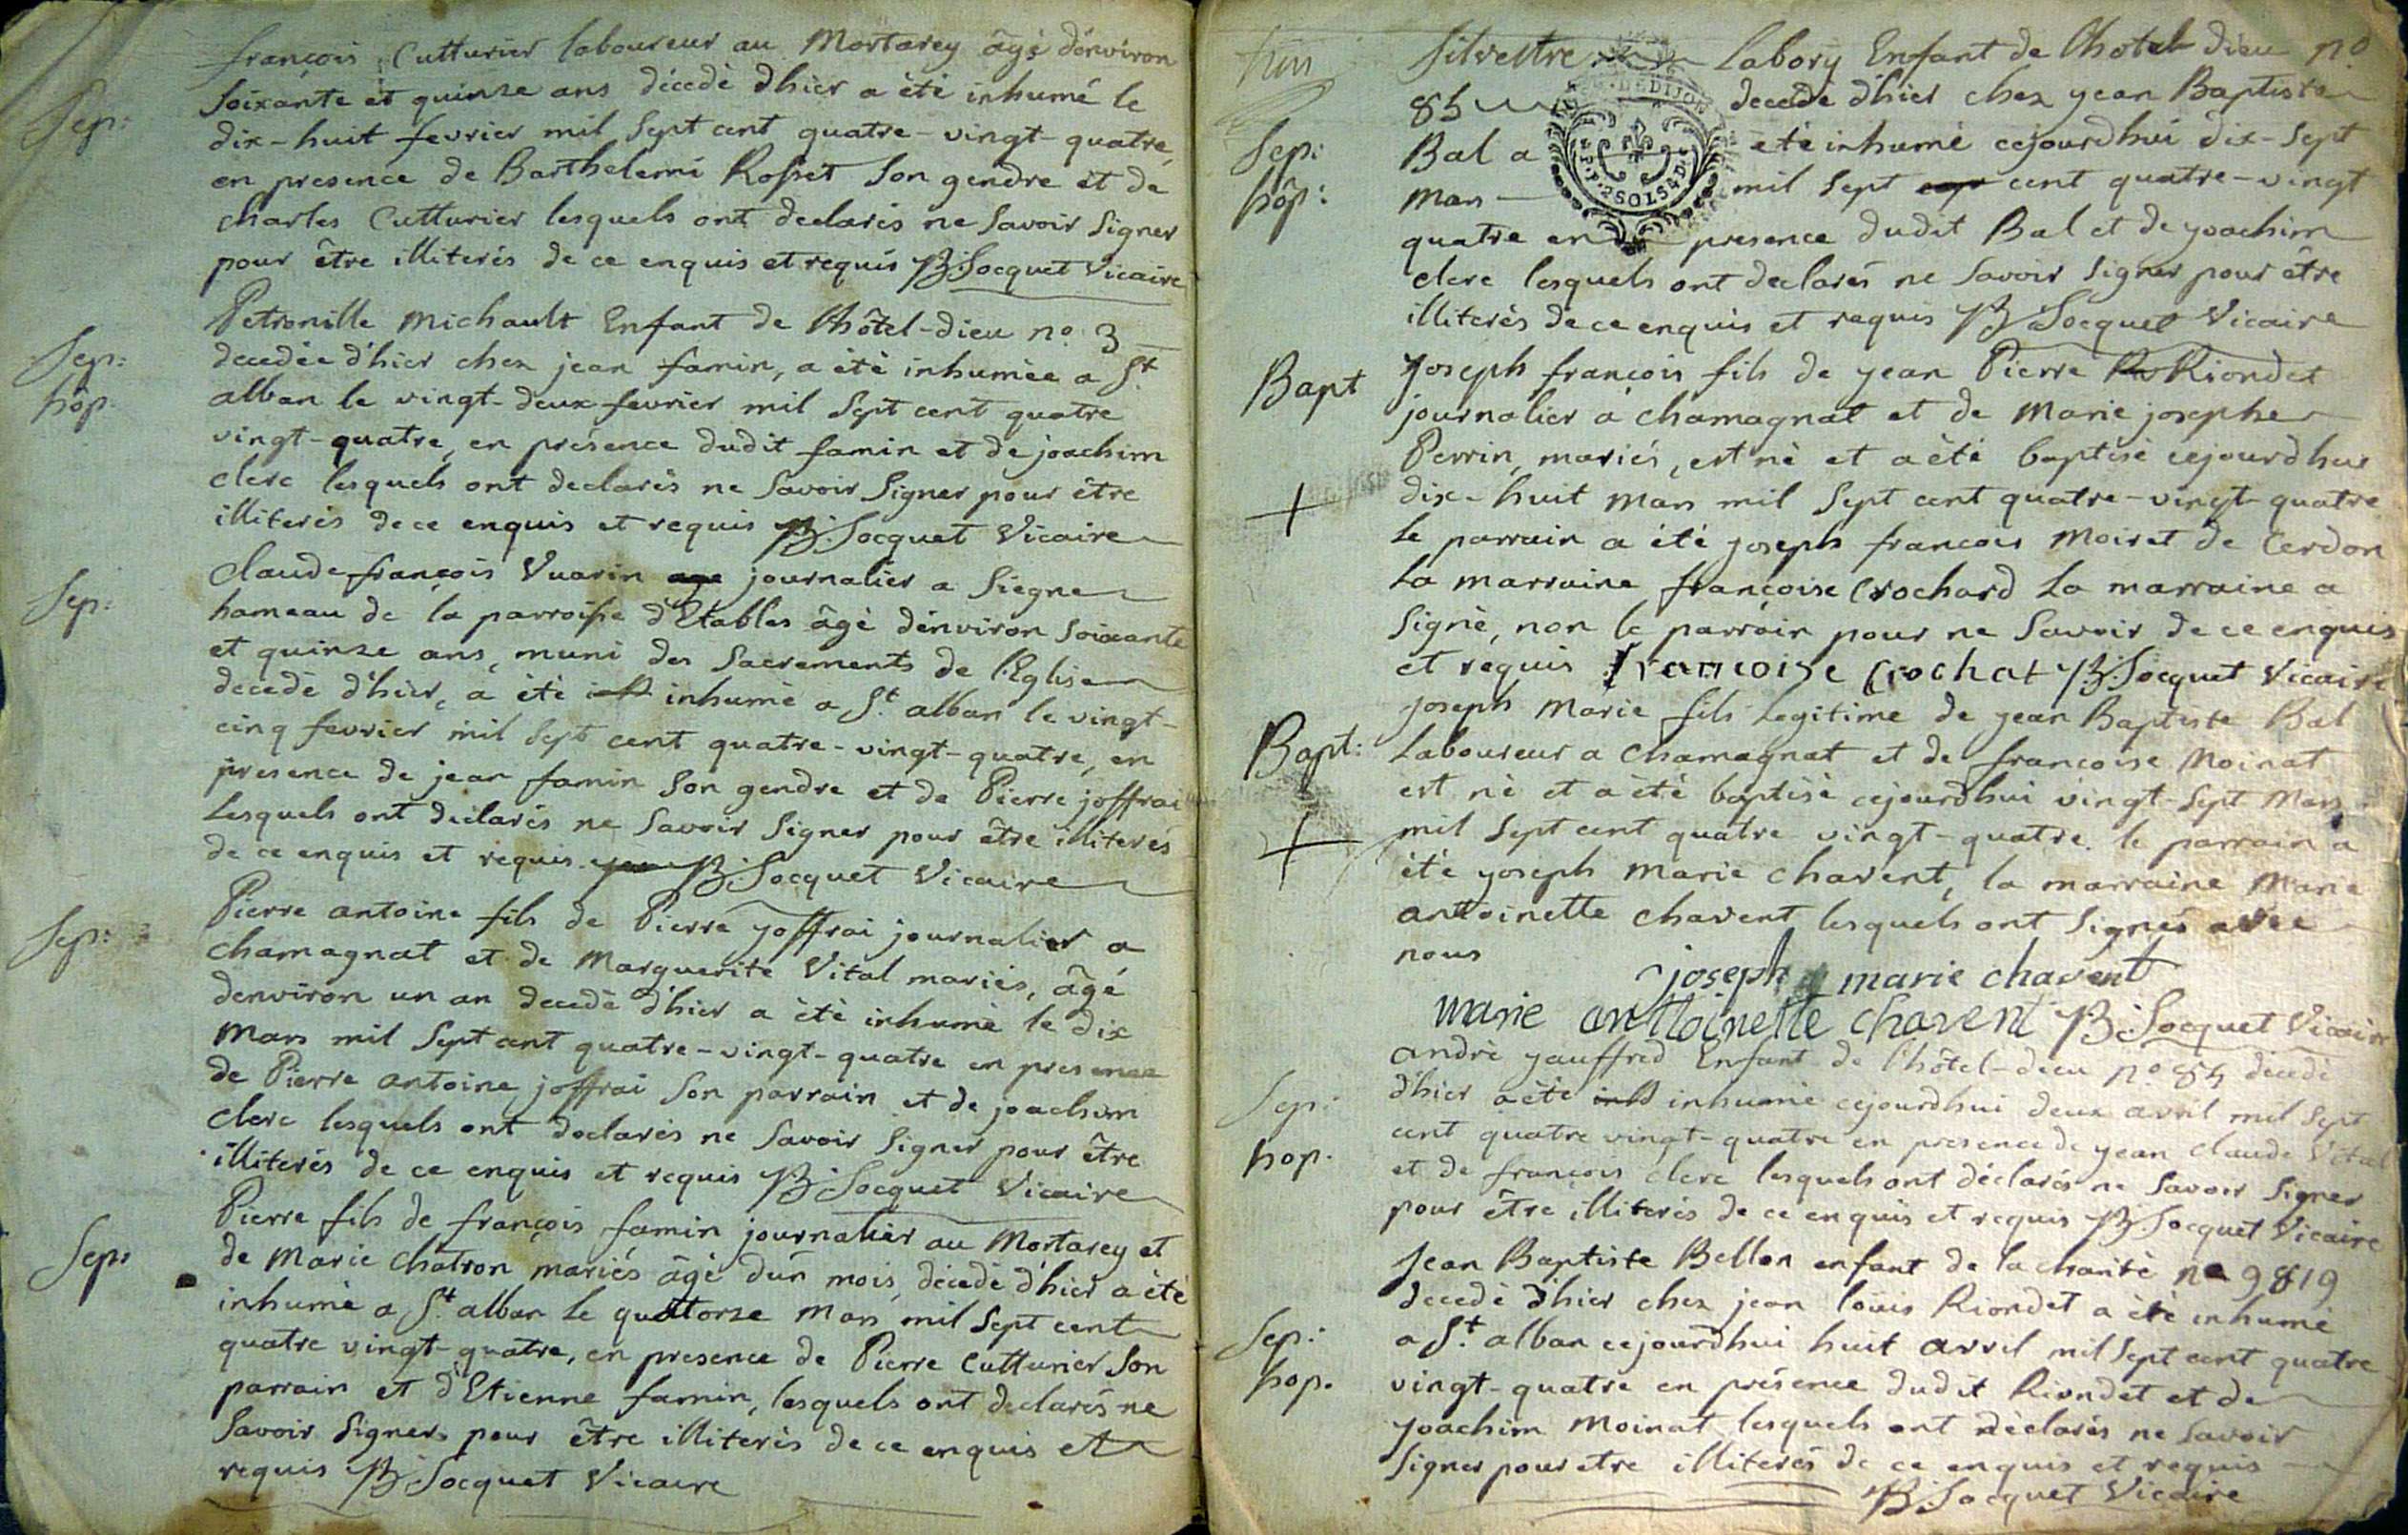 françois Cutturier laboureur au Mortarey âgé d'environ
Sep:
soixante et quinze ans décedé d'hier a été inhumé le
dix-huit fevrier mil sept cent quatre-vingt-quatre,
en presence de Barthelemi Rosset son gendre et de
charles Cutturier lesquels ont declarés ne savoir signer
pour être illiterés de ce enquis et requis B: Socquet Vicaire
Petronille Michault Enfant de l'hôtel-dieu n.º 3
Sep:
hôp.
decedée d'hier chez jean famin, a été inhumée a St.
alban le vingt-deux fevrier mil sept cent quatre
vingt-quatre, en présence dudit famin et de joachim
clerc lesquels ont declarés ne savoir signer pour être
illiterés de ce enquis et requis B: Socquet Vicaire
Claude françois Vuarin age journalier a Siegne
Sep:
hameau de la parroisse d'Etables âgé d'environ soixante
et quinze ans, muni des Sacrements de l'Eglise
decedé d'hier, a été inhumé a St. alban le vingt-
cinq fevrier mil sept cent quatre-vingt-quatre, en
presence de jean famin son gendre et de Pierre joffrai
lesquels ont déclarés ne savoir signer pour être illiterés
de ce enquis et requis. B: Socquet Vicaire
Sep:
Pierre antoine fils de Pierre joffrai journalier a
chamagnat et de Marguerite Vital mariés, âgé
d'environ un an decedé d'hier a été inhumé le dix
Mars mil sept cent quatre-vingt-quatre en presence
de Pierre antoine joffrai son parrain et de joachim
clerc lesquels ont declarés ne savoir signer pour être
illiterés de ce enquis et requis B: Socquet Vicaire
Sep:
Pierre fils de françois famin journalier au Mortarey et
de Marie Chatron mariés âgé d'un mois, décedé d'hier a été
inhumé a St. alban le quattorze Mars mil sept cent
quatre vingt-quatre, en presence de Pierre Cutturier son
parrain et d'Etienne famin, lesquels ont declarés ne
savoir signer pour être illiterés de ce enquis et
requis B: Socquet Vicaire
Silvestre Labory Enfant de l'hotel dieu n.º
85 decedé d'hier chez jean Baptiste
Sep:
hôp:
Bal a été inhumé cejourdhui dix-sept
DE DIJON
2 SOLS 4 D
Mars mil sept cent quatre-vingt
quatre en presence dudit Bal et de joachim
clerc lesquels ont declarés ne savoir signer pour être
illiterés de ce enquis et requis B: Socquet Vicaire
Bapt
joseph françois fils de jean Pierre Riondet
journalier a chamagnat et de Marie josephe
Perrin, mariés, est né et a été baptisé cejourdhui
dix-huit Mars mil sept cent quatre-vingt-quatre
le parrain a été joseph francois Moiret de Cerdon
la marraine françoise Crochard la marraine a
signé, non le parrain pour ne savoir de ce enquis
et requis francoise Crochat B: Socquet Vicaire
Bapt:
joseph Marie fils legitime de jean Baptiste Bal
Laboureur a chamagnat et de francoise Moinat
est né et a été baptisé cejourdhui vingt-sept Mars
mil sept cent quatre vingt-quatre. le parrain a
été joseph Marie chavent, la marraine Marie
antoinette chavent lesquels ont signés avec
nous
joseph marie chavent
marie anttoinette chavent B: Socquet Vicaire
andré jauffred Enfant de l'hôtel-dieu n.º 85 décedé
Sep:
hop.
d'hier a été inhumé cejourdhui deux avril mil sept
cent quatre vingt-quatre en presence de jean claude Vital
et de françois clerc lesquels ont déclarés ne savoir signer
pour être illiterés de ce enquis et requis B: Socquet Vicaire
Jean Baptiste Bellon enfant de la charité nº 9819
decedé d'hier chez jean louis Riondet a été inhumé
Sep:
hop.
a St. alban cejourdhui huit avril mil sept cent quatre
vingt-quatre en présence dudit Riondet et de
joachim Moinat lesquels ont déclarés ne savoir
signer pour etre illiterés de ce enquis et requis
B: Socquet Vicaire